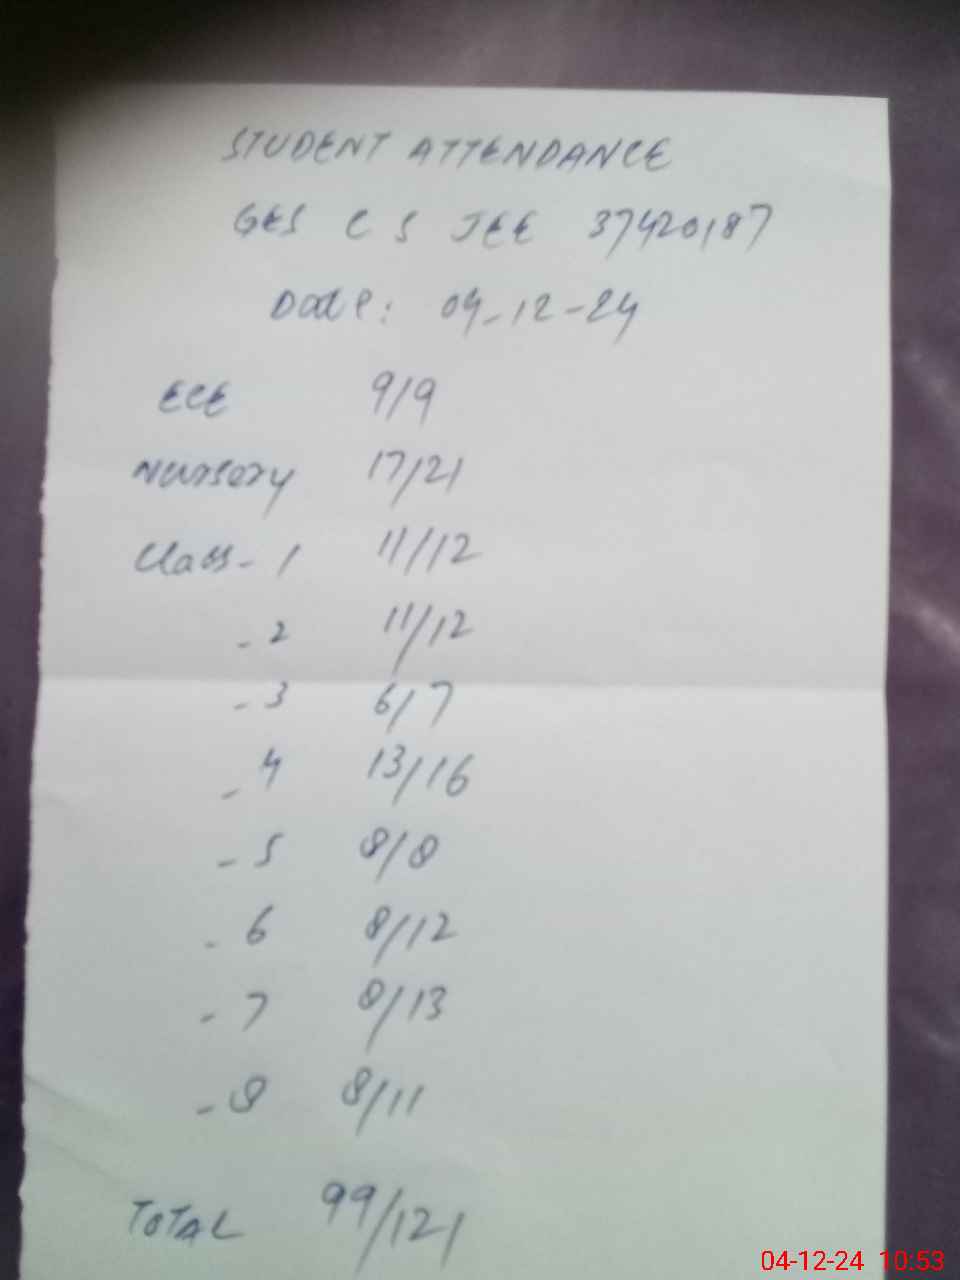 STUDENT ATTENDANCE
GES C S JEE 37420187
Date: 04-12-24
ECE 9/9
Nursery 17/21
Class-1 11/12
-2 11/12
-3 6/7
-4 13/16
-5 8/8
-6 8/12
-7 8/13
-8 8/11
TOTAL 99/121
04-12-24 10:53